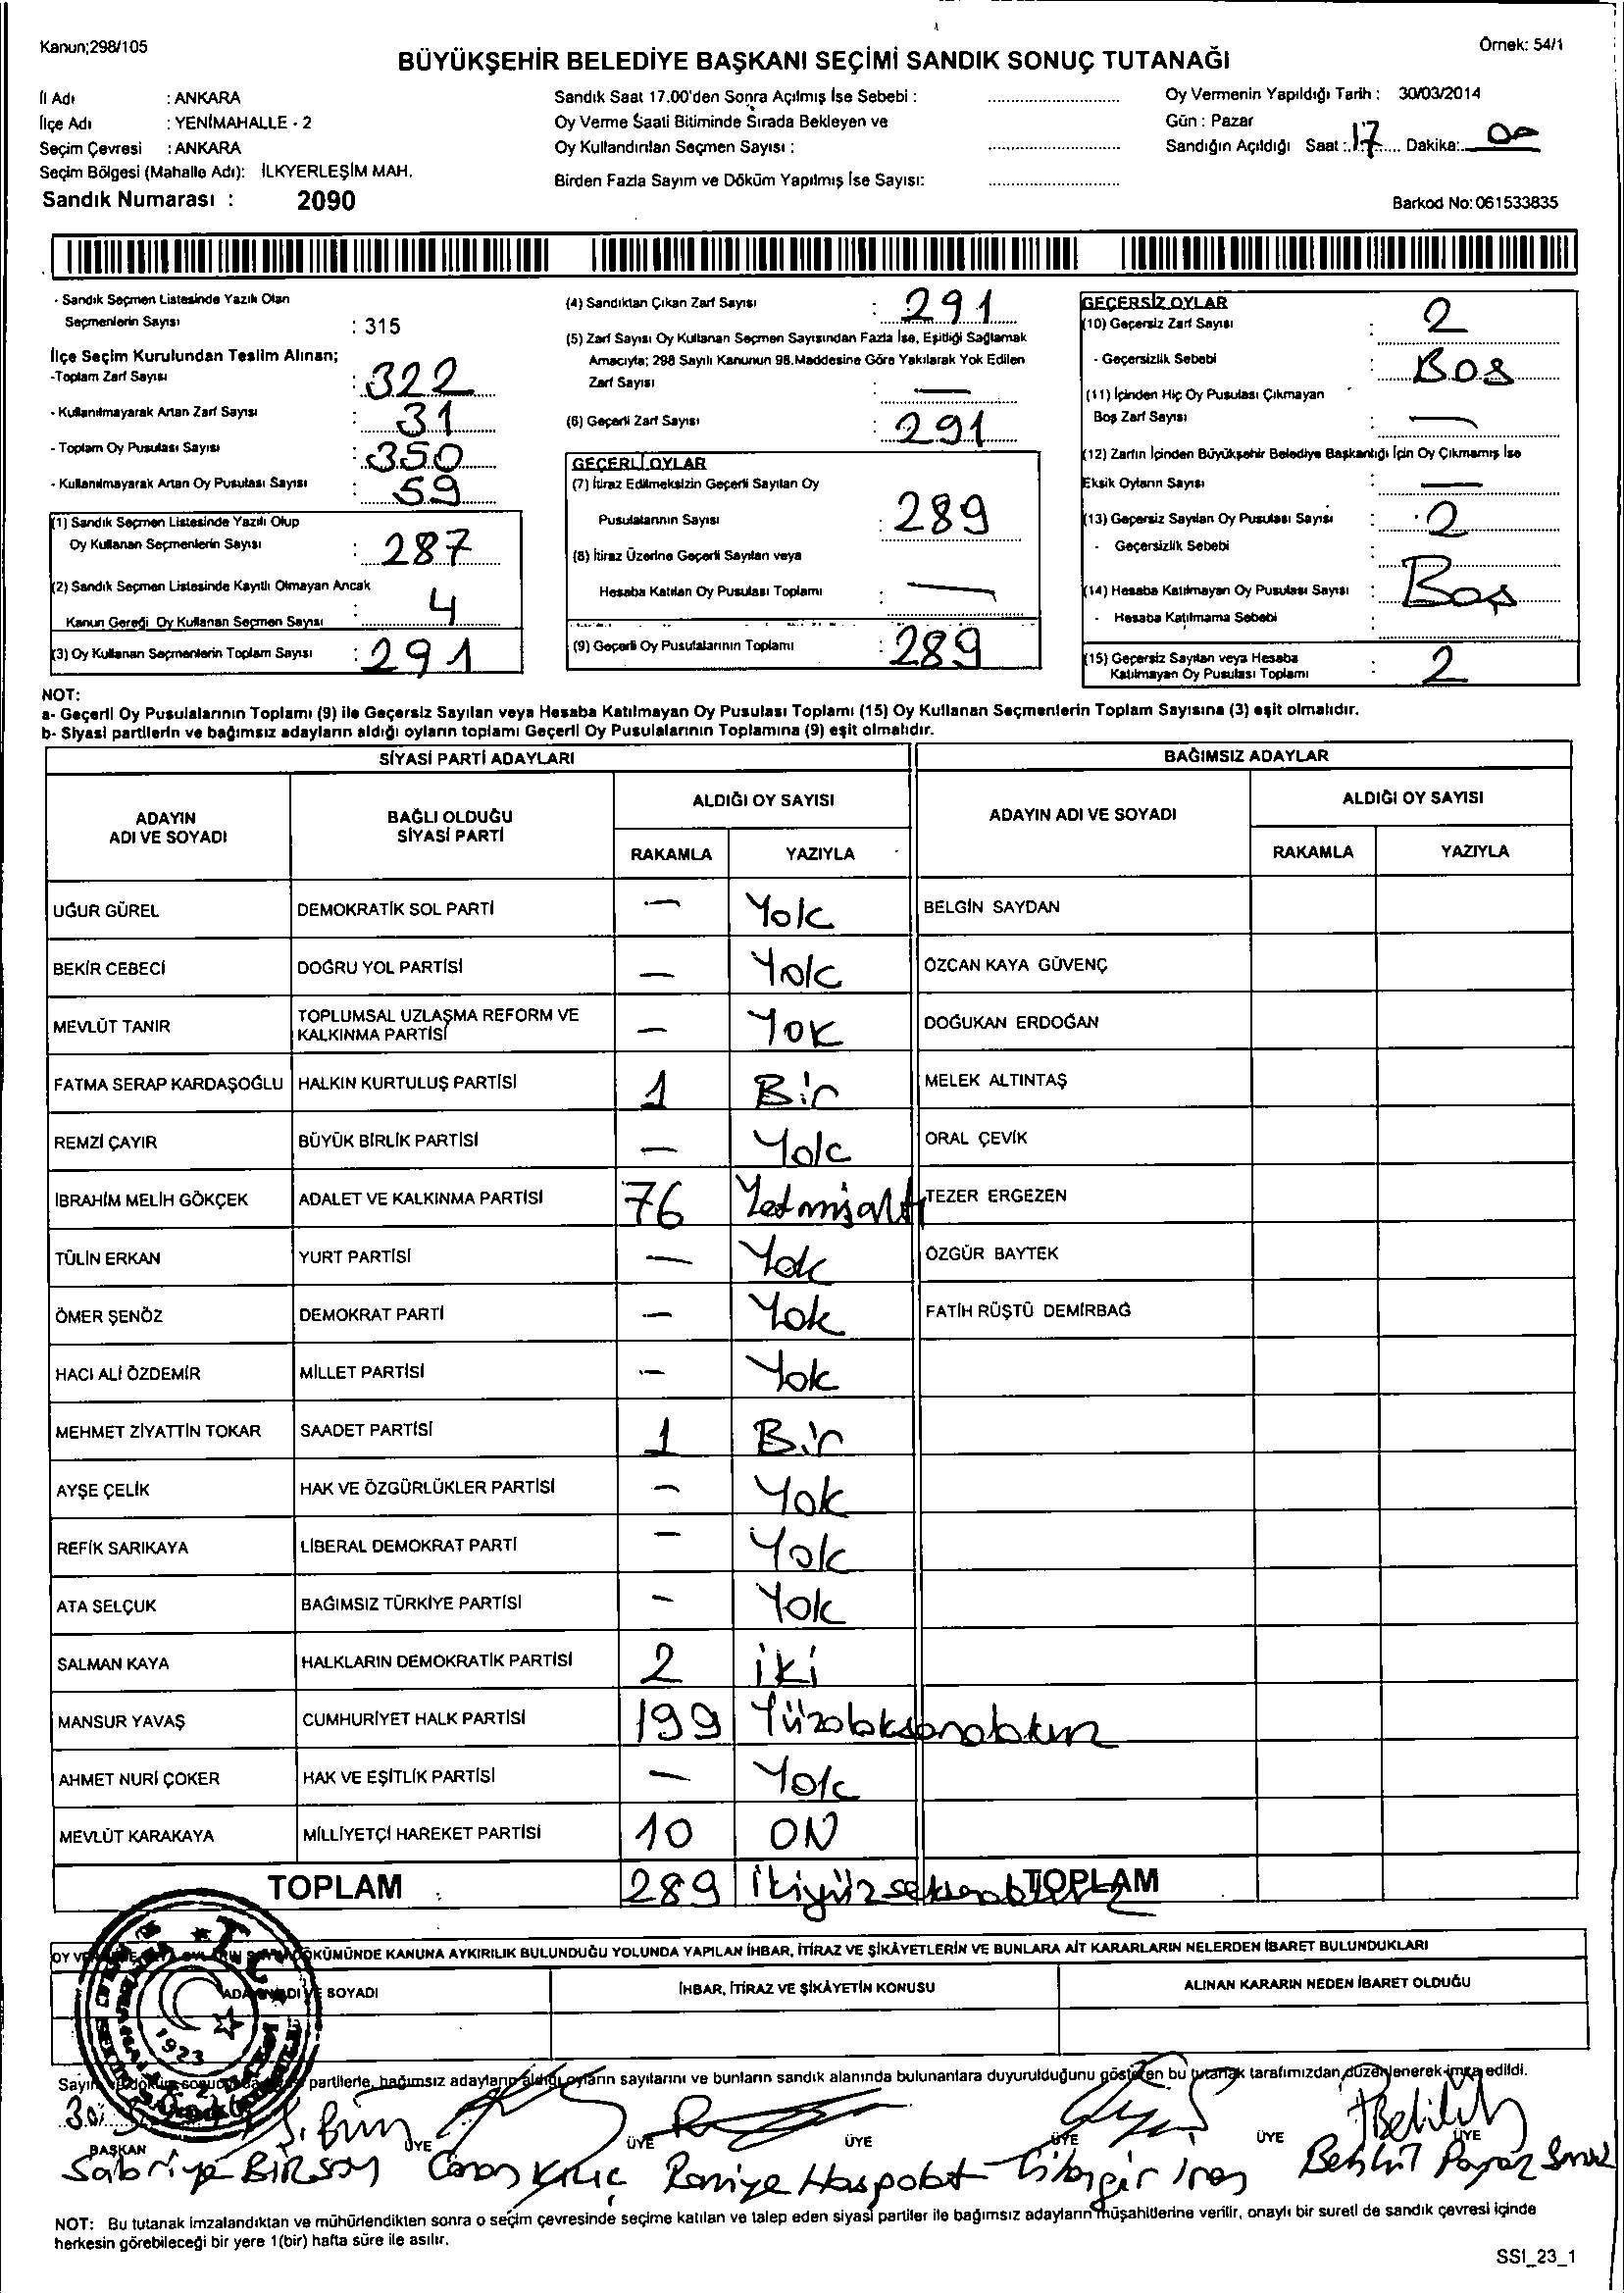 Kanun;298/105
Örnek: 54/1
BÜYÜKŞEHİR BELEDİYE BAŞKANI SEÇİMİ SANDIK SONUÇ TUTANAĞI
İl Adı : ANKARA
İlçe Adı : YENİMAHALLE - 2
Seçim Çevresi : ANKARA
Seçim Bölgesi (Mahalle Adı): İLKYERLEŞİM MAH.
Sandık Numarası : 2090
Sandık Saat 17.00'den Sonra Açılmış İse Sebebi :
Oy Verme Saati Bitiminde Sırada Bekleyen ve
Oy Kullandırılan Seçmen Sayısı :
Birden Fazla Sayım ve Döküm Yapılmış İse Sayısı:
Oy Vermenin Yapıldığı Tarih : 30/03/2014
Gün : Pazar
Sandığın Açıldığı Saat : 17 Dakika: 00
Barkod No: 061533835
- Sandık Seçmen Listesinde Yazılı Olan
Seçmenlerin Sayısı : 315
İlçe Seçim Kurulundan Teslim Alınan;
-Toplam Zarf Sayısı : 322
- Kullanılmayarak Artan Zarf Sayısı : 31
- Toplam Oy Pusulası Sayısı : 350
- Kullanılmayarak Artan Oy Pusulası Sayısı : 59
(1) Sandık Seçmen Listesinde Yazılı Olup
Oy Kullanan Seçmenlerin Sayısı : 287
(2) Sandık Seçmen Listesinde Kayıtlı Olmayan Ancak
Kanun Gereği Oy Kullanan Seçmen Sayısı : 4
(3) Oy Kullanan Seçmenlerin Toplam Sayısı : 291
(4) Sandıktan Çıkan Zarf Sayısı : 291
(5) Zarf Sayısı Oy Kullanan Seçmen Sayısından Fazla İse, Eşitliği Sağlamak
Amacıyla; 298 Sayılı Kanunun 98.Maddesine Göre Yakılarak Yok Edilen
Zarf Sayısı : —
(6) Geçerli Zarf Sayısı : 291
GEÇERLİ OYLAR
(7) İtiraz Edilmeksizin Geçerli Sayılan Oy
Pusulalarının Sayısı : 289
(8) İtiraz Üzerine Geçerli Sayılan veya
Hesaba Katılan Oy Pusulası Toplamı : —
(9) Geçerli Oy Pusulalarının Toplamı : 289
GEÇERSİZ OYLAR
(10) Geçersiz Zarf Sayısı : 2
- Geçersizlik Sebebi : Boş
(11) İçinden Hiç Oy Pusulası Çıkmayan
Boş Zarf Sayısı : —
(12) Zarfın İçinden Büyükşehir Belediye Başkanlığı İçin Oy Çıkmamış İse
Eksik Oyların Sayısı : —
(13) Geçersiz Sayılan Oy Pusulası Sayısı : 2
- Geçersizlik Sebebi :
(14) Hesaba Katılmayan Oy Pusulası Sayısı : Boş
- Hesaba Katılmama Sebebi :
(15) Geçersiz Sayılan veya Hesaba
Katılmayan Oy Pusulası Toplamı : 2
NOT:
a- Geçerli Oy Pusulalarının Toplamı (9) ile Geçersiz Sayılan veya Hesaba Katılmayan Oy Pusulası Toplamı (15) Oy Kullanan Seçmenlerin Toplam Sayısına (3) eşit olmalıdır.
b- Siyasi partilerin ve bağımsız adayların aldığı oyların toplamı Geçerli Oy Pusulalarının Toplamına (9) eşit olmalıdır.
SİYASİ PARTİ ADAYLARI BAĞIMSIZ ADAYLAR
ADAYIN ADI VE SOYADI BAĞLI OLDUĞU SİYASİ PARTİ ALDIĞI OY SAYISI ADAYIN ADI VE SOYADI ALDIĞI OY SAYISI
RAKAMLA YAZIYLA RAKAMLA YAZIYLA
UĞUR GÜREL DEMOKRATİK SOL PARTİ — Yok BELGİN SAYDAN
BEKİR CEBECİ DOĞRU YOL PARTİSİ — Yok ÖZCAN KAYA GÜVENÇ
MEVLÜT TANIR TOPLUMSAL UZLAŞMA REFORM VE KALKINMA PARTİSİ — Yok DOĞUKAN ERDOĞAN
FATMA SERAP KARDAŞOĞLU HALKIN KURTULUŞ PARTİSİ 1 Bir MELEK ALTINTAŞ
REMZİ ÇAYIR BÜYÜK BİRLİK PARTİSİ — Yok ORAL ÇEVİK
İBRAHİM MELİH GÖKÇEK ADALET VE KALKINMA PARTİSİ 76 Yetmişaltı TEZER ERGEZEN
TÜLİN ERKAN YURT PARTİSİ — Yok ÖZGÜR BAYTEK
ÖMER ŞENÖZ DEMOKRAT PARTİ — Yok FATİH RÜŞTÜ DEMİRBAĞ
HACI ALİ ÖZDEMİR MİLLET PARTİSİ — Yok
MEHMET ZİYATTİN TOKAR SAADET PARTİSİ 1 Bir
AYŞE ÇELİK HAK VE ÖZGÜRLÜKLER PARTİSİ — Yok
REFİK SARIKAYA LİBERAL DEMOKRAT PARTİ — Yok
ATA SELÇUK BAĞIMSIZ TÜRKİYE PARTİSİ — Yok
SALMAN KAYA HALKLARIN DEMOKRATİK PARTİSİ 2 iki
MANSUR YAVAŞ CUMHURİYET HALK PARTİSİ 199 Yüzdoksandokuz
AHMET NURİ ÇOKER HAK VE EŞİTLİK PARTİSİ — Yok
MEVLÜT KARAKAYA MİLLİYETÇİ HAREKET PARTİSİ 10 ON
TOPLAM : 289 İkiyüzseksendokuz TOPLAM
DÖKÜMÜNDE KANUNA AYKIRILIK BULUNDUĞU YOLUNDA YAPILAN İHBAR, İTİRAZ VE ŞİKÂYETLERİN VE BUNLARA AİT KARARLARIN NELERDEN İBARET BULUNDUKLARI
ADAYIN ADI VE SOYADI İHBAR, İTİRAZ VE ŞİKÂYETİN KONUSU ALINAN KARARIN NEDEN İBARET OLDUĞU
T.C.
1923
partilerle, bağımsız adayların aldığı oyların sayılarını ve bunların sandık alanında bulunanlara duyurulduğunu gösteren bu tutanak tarafımızdan düzenlenerek imza edildi.
BAŞKAN ÜYE ÜYE ÜYE ÜYE ÜYE ÜYE
Sabriye BİRSOY Kılıç Raniye Haspolat
NOT: Bu tutanak imzalandıktan ve mühürlendikten sonra o seçim çevresinde seçime katılan ve talep eden siyasi partiler ile bağımsız adayların müşahitlerine verilir, onaylı bir sureti de sandık çevresi içinde
herkesin görebileceği bir yere 1(bir) hafta süre ile asılır.
SSI_23_1